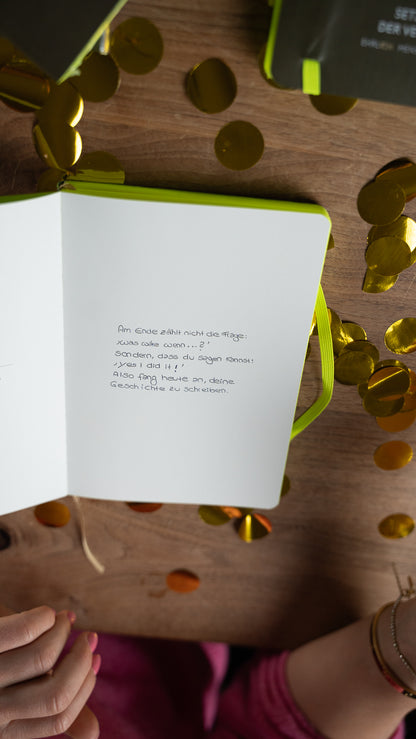 SET
DER VE
EHRLICH. MEN
Am Ende zählt nicht die Frage:
‚was wäre wenn...?'
sondern, dass du sagen kannst:
‚yes I did it!'
Also fang heute an, deine
Geschichte zu schreiben.